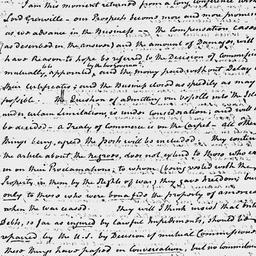 I am this moment returned from a long conference with
Lord Grenville — our Prospects become more and more promising
as we advance in the Business — The Compensation Cases
as described in the answer) and the amount of Damages, will
have Reason to hope be referred to the Decision of Commissioners
mutually, appointed, and the money paid without Delay
their certificates; and the Business closed as speedily as may be
possible. The Question of admitting our vessels into the Isl
under certain Limitations, is under Consideration; and will
be decided — a Treaty of Commerce is on the Carpet — All other
things being agreed the posts will be included. They contend
the article about the negroes, does not extend to those who
on their Proclamations, to whom (being vested with the
Property in them by the Rights of war) they gave Freedom; but
only to those who were bona fide the property of americans
when the war ceased. They will I think insist that Brit
Debts, so far as injured by Lawful Impediments, should be
repaired by the U.S. by Decision of mutual Commissioners
These things have passed in Conversation, but no Commitm